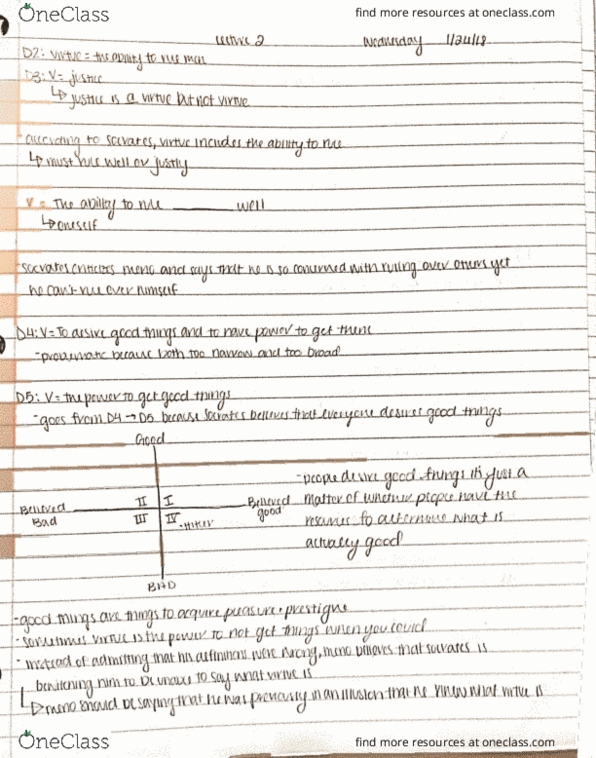 OneClass
find more resources at oneclass.com
Lecture 2 Wednesday 1/24/18
D2: Virtue = the ability to rule men
D3: V = justice
↳ justice is a virtue but not virtue
-according to socrates, virtue includes the ability to rule
↳ must rule well or justly
V = The ability to rule ______ well
↳ oneself
-socrates criticizes meno and says that he is so concerned with ruling over others yet
he can't rule over himself
D4: V = To desire good things and to have power to get them
-problematic because both too narrow and too broad
D5: V = the power to get good things
-goes from D4 → D5 because socrates believes that everyone desires good things
Good
Believed Bad
II I
III IV
-Hitler
Believed good
BAD
-people desire good things it's just a
matter of whether people have the
resources to determine what is
actually good
-good things are things to acquire pleasure + prestige
-sometimes virtue is the power to not get things when you could
-instead of admitting that his definitions were wrong, meno believes that socrates is
bewitching him to be unable to say what virtue is
↳ meno should be saying that he was previously in an illusion that he knew what virtue is
OneClass
find more resources at oneclass.com